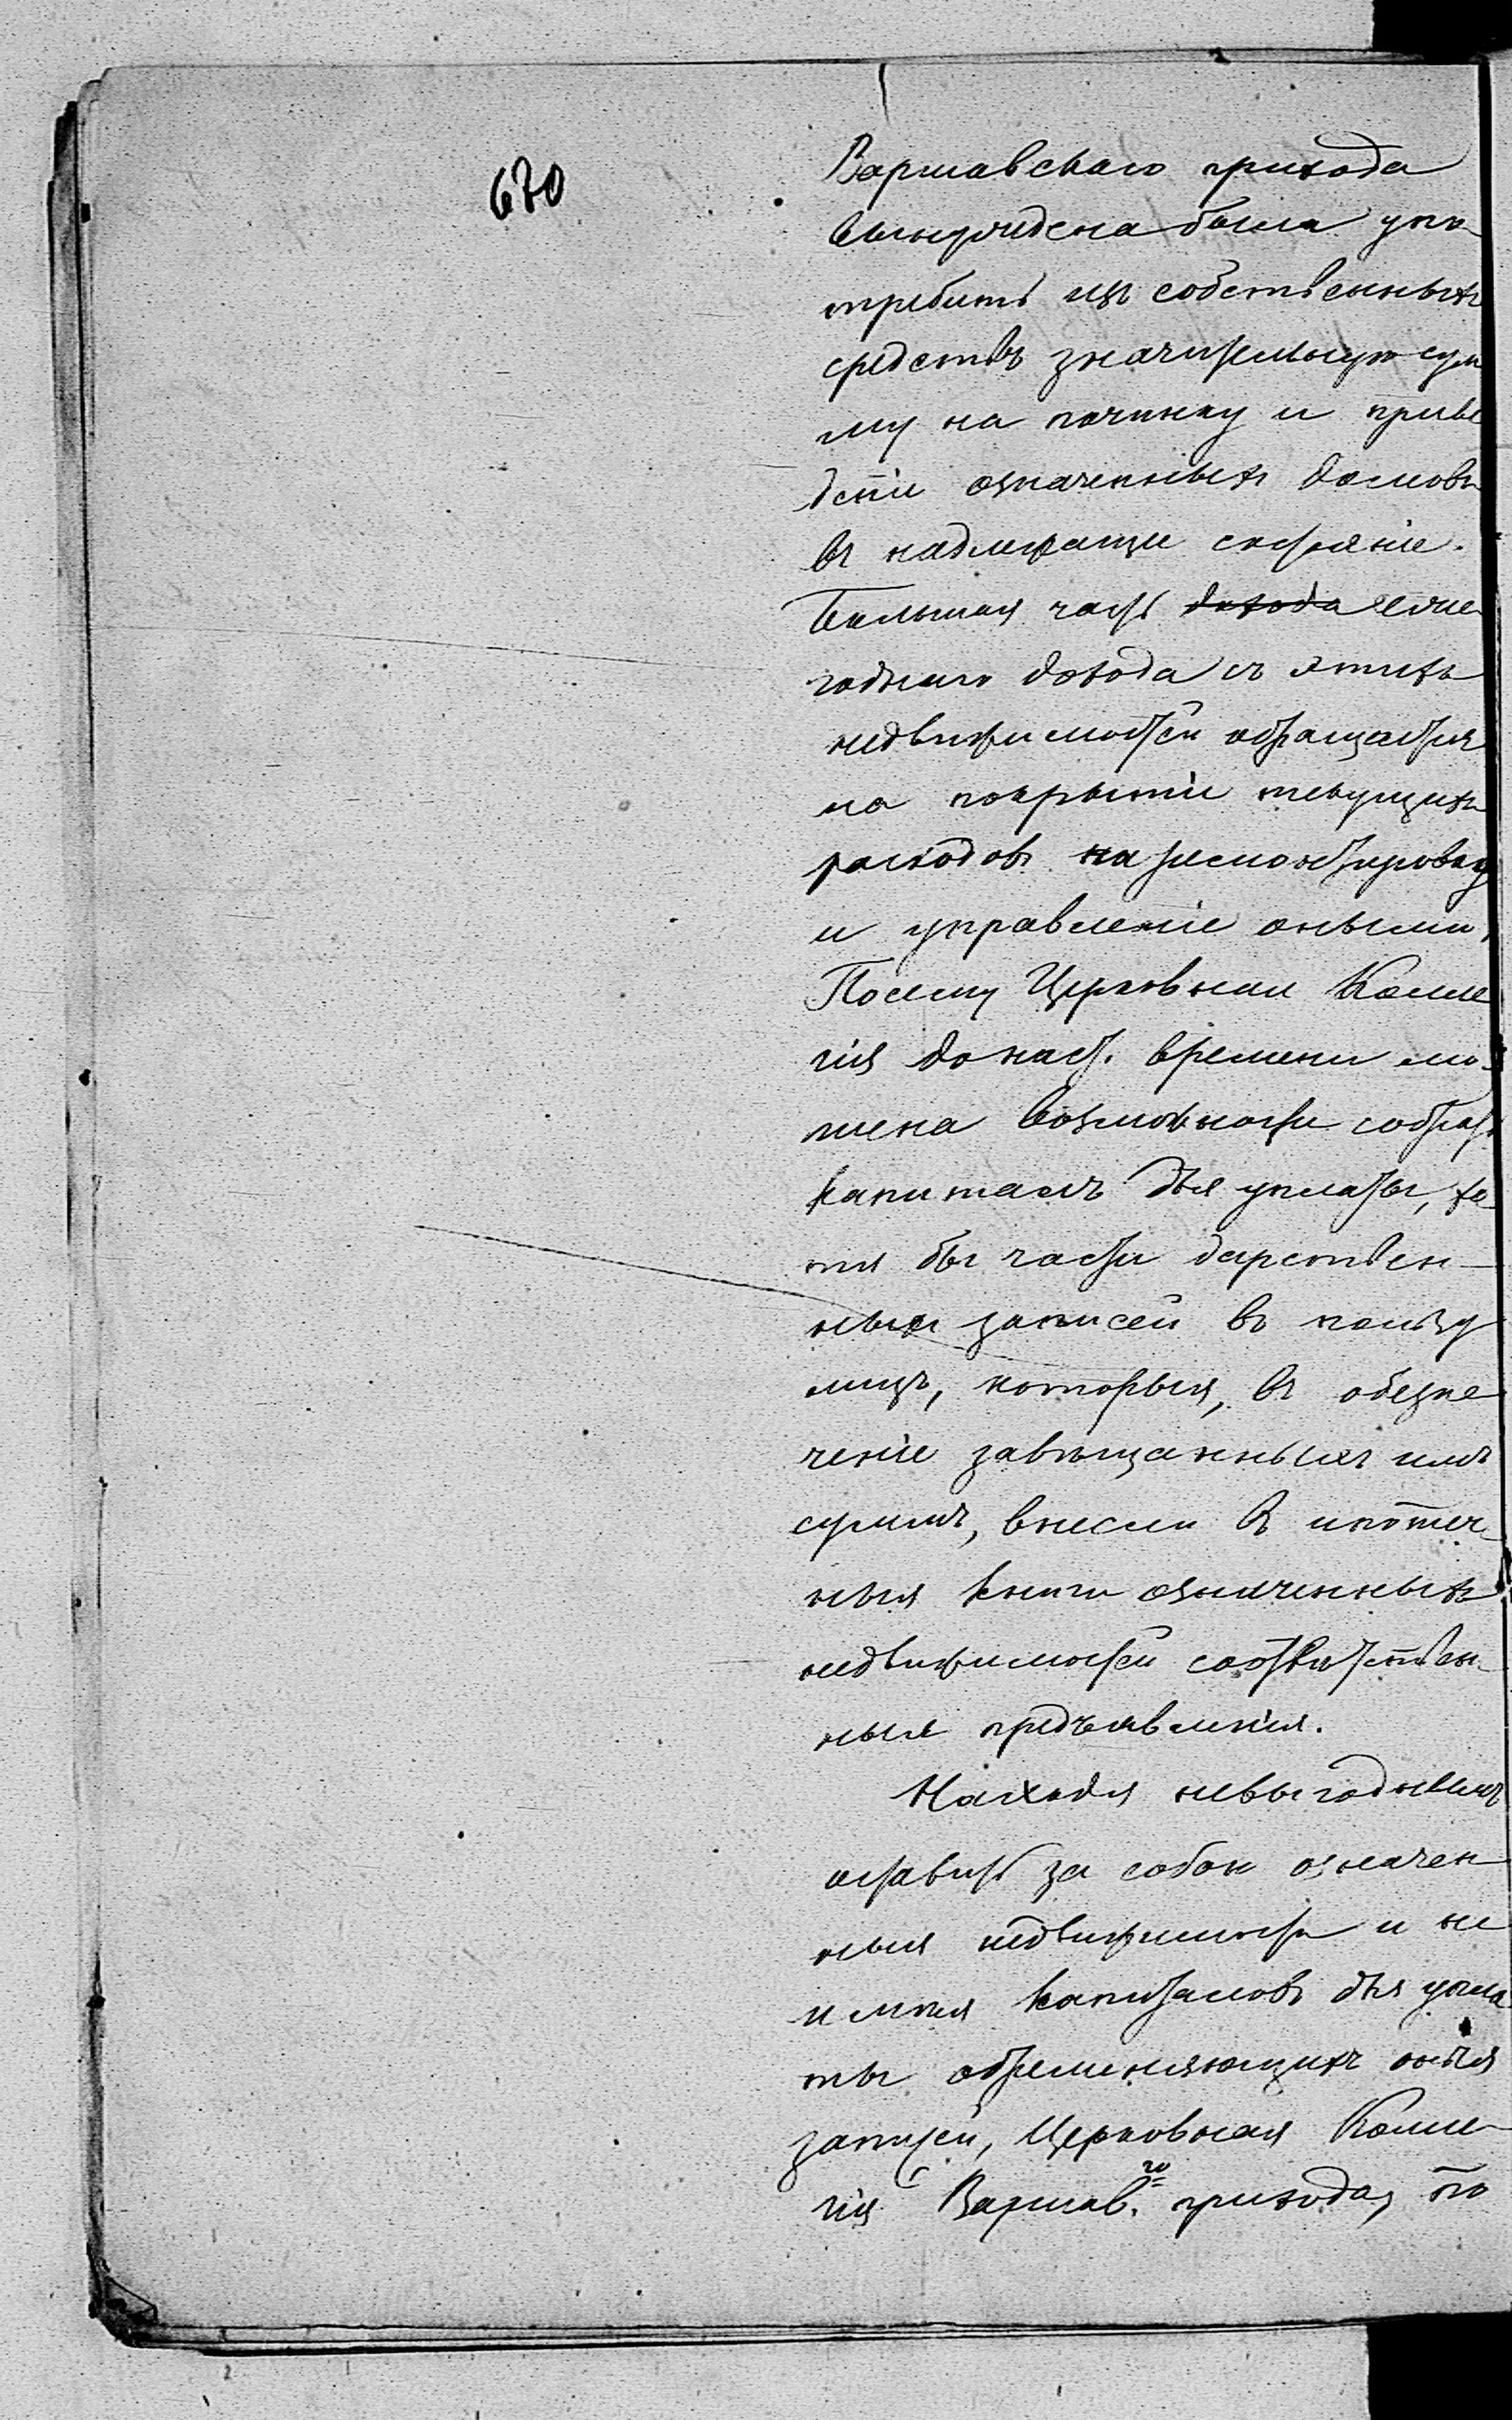 670
Варшавскаго прихода
вынуждена была упо
требить изъ собственныхъ
средствъ значительную сум
му на починку и приве
денiе означенныхъ домовъ
въ надлежащее состоянiе.
Большая часть дохода еже
годнаго дохода съ этихъ
недвижимостей обращается
на покрытiе текущихъ
расходовъ на ремонтировку
и управленiе оными,
Посему Церковная Колле
гiя до наст. времени ли
шена возможности собрать
капиталъ для уплаты, хо
тя бы части дарствен-
ныхъ записей въ пользу
лицъ, которыя, въ обезпе
ченiе завѣщанныхъ имъ
суммъ, внесли въ ипотеч
ныя книги означенныхъ
недвижимостей соотвѣтствен-
ныя предъявленiя.
Находя невыгоднымъ
оставить за собою означен
ныя недвижимости и не
имѣя капиталовъ для упла
ты обременяющихъ оныя
записей, Церковная Колле-
гiя Варшав.го прихода, по